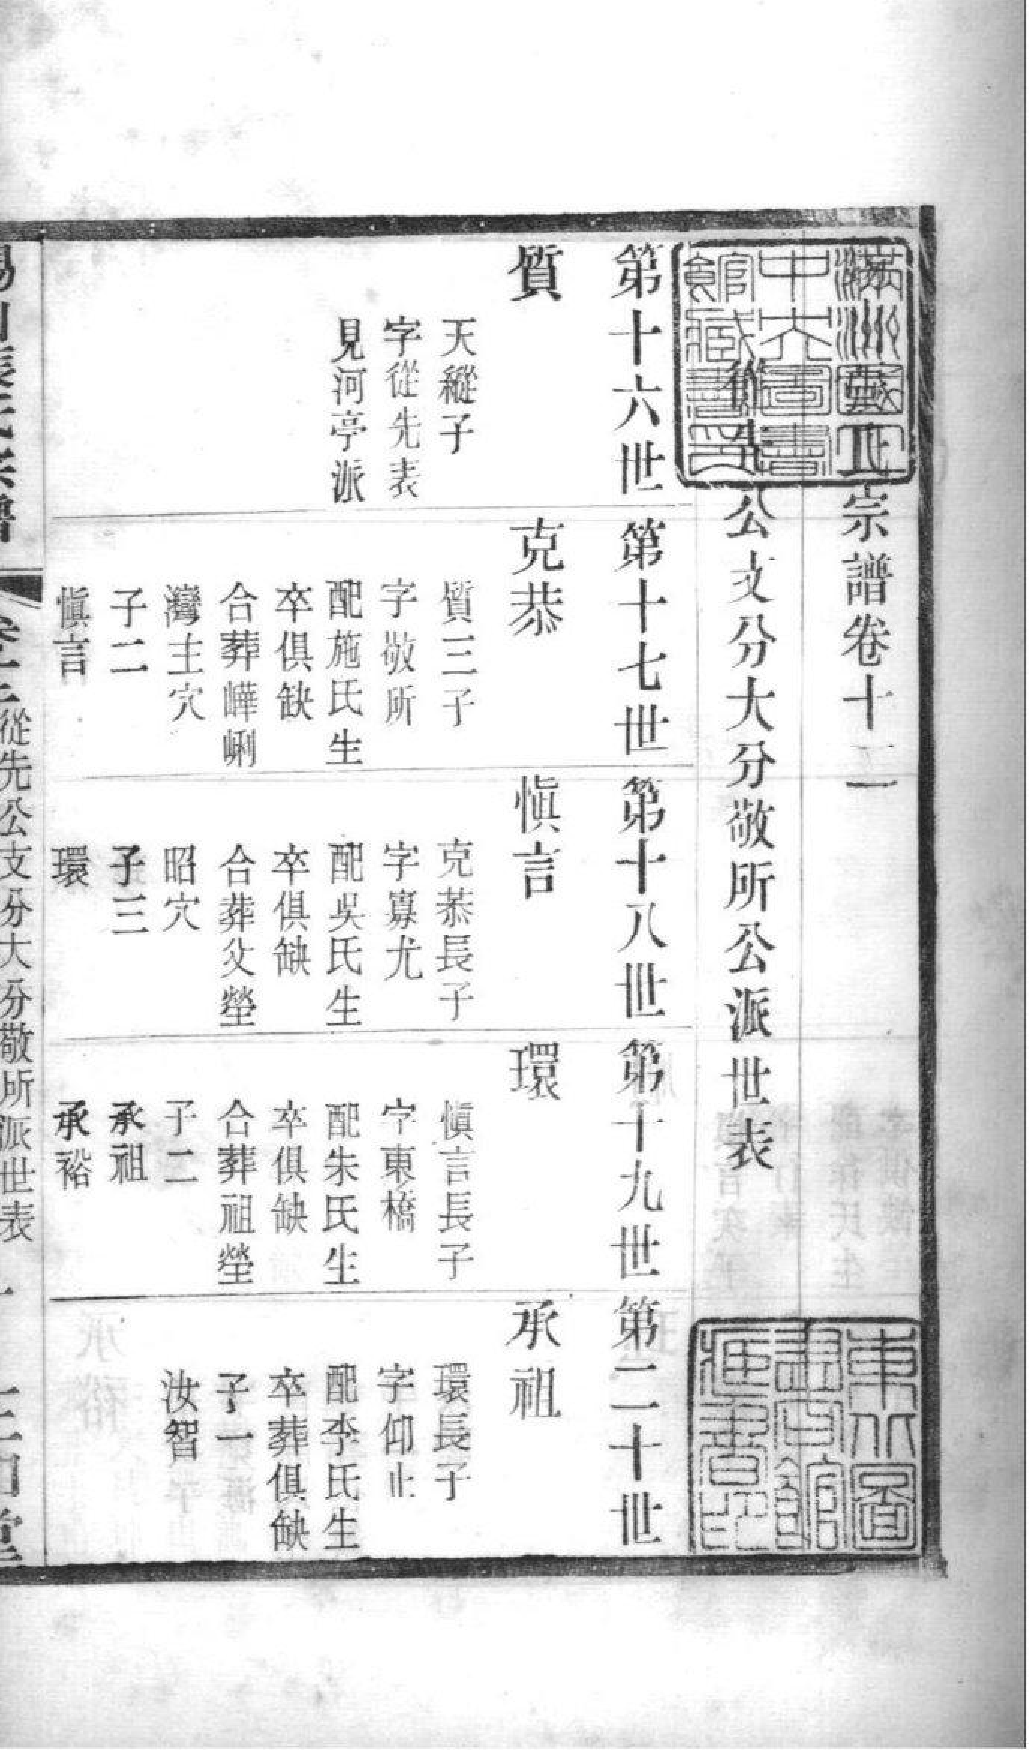 氏宗譜卷十二
從先公支分大分敬所公派世表
第十六世
質
天縱子
字從先表
見河亭派
第十七世
克恭
質三子
字敬所
配施氏生
卒俱缺
合葬嶂峢
灣主穴
子二
愼言
第十八世
愼言
克恭長子
字寡尤
配吳氏生
卒俱缺
合葬父塋
昭穴
子三
環
第十九世
環
愼言長子
字東橋
配朱氏生
卒俱缺
合葬祖塋
子二
承祖
承裕
第二十世
承祖
環長子
字仰止
配李氏生
卒葬俱缺
子一
汝智
張氏宗譜
從先公支分大分敬所派世表
滿洲國立中央圖書館藏書印
東北圖書館藏書印